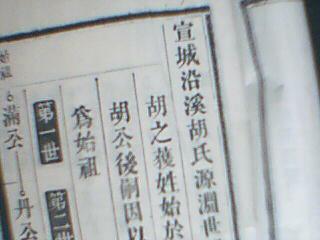 宣城沿溪胡氏源淵世
胡之獲姓始於
胡公後嗣因以
為始祖
第一世
第二世
滿公
丹公
始祖